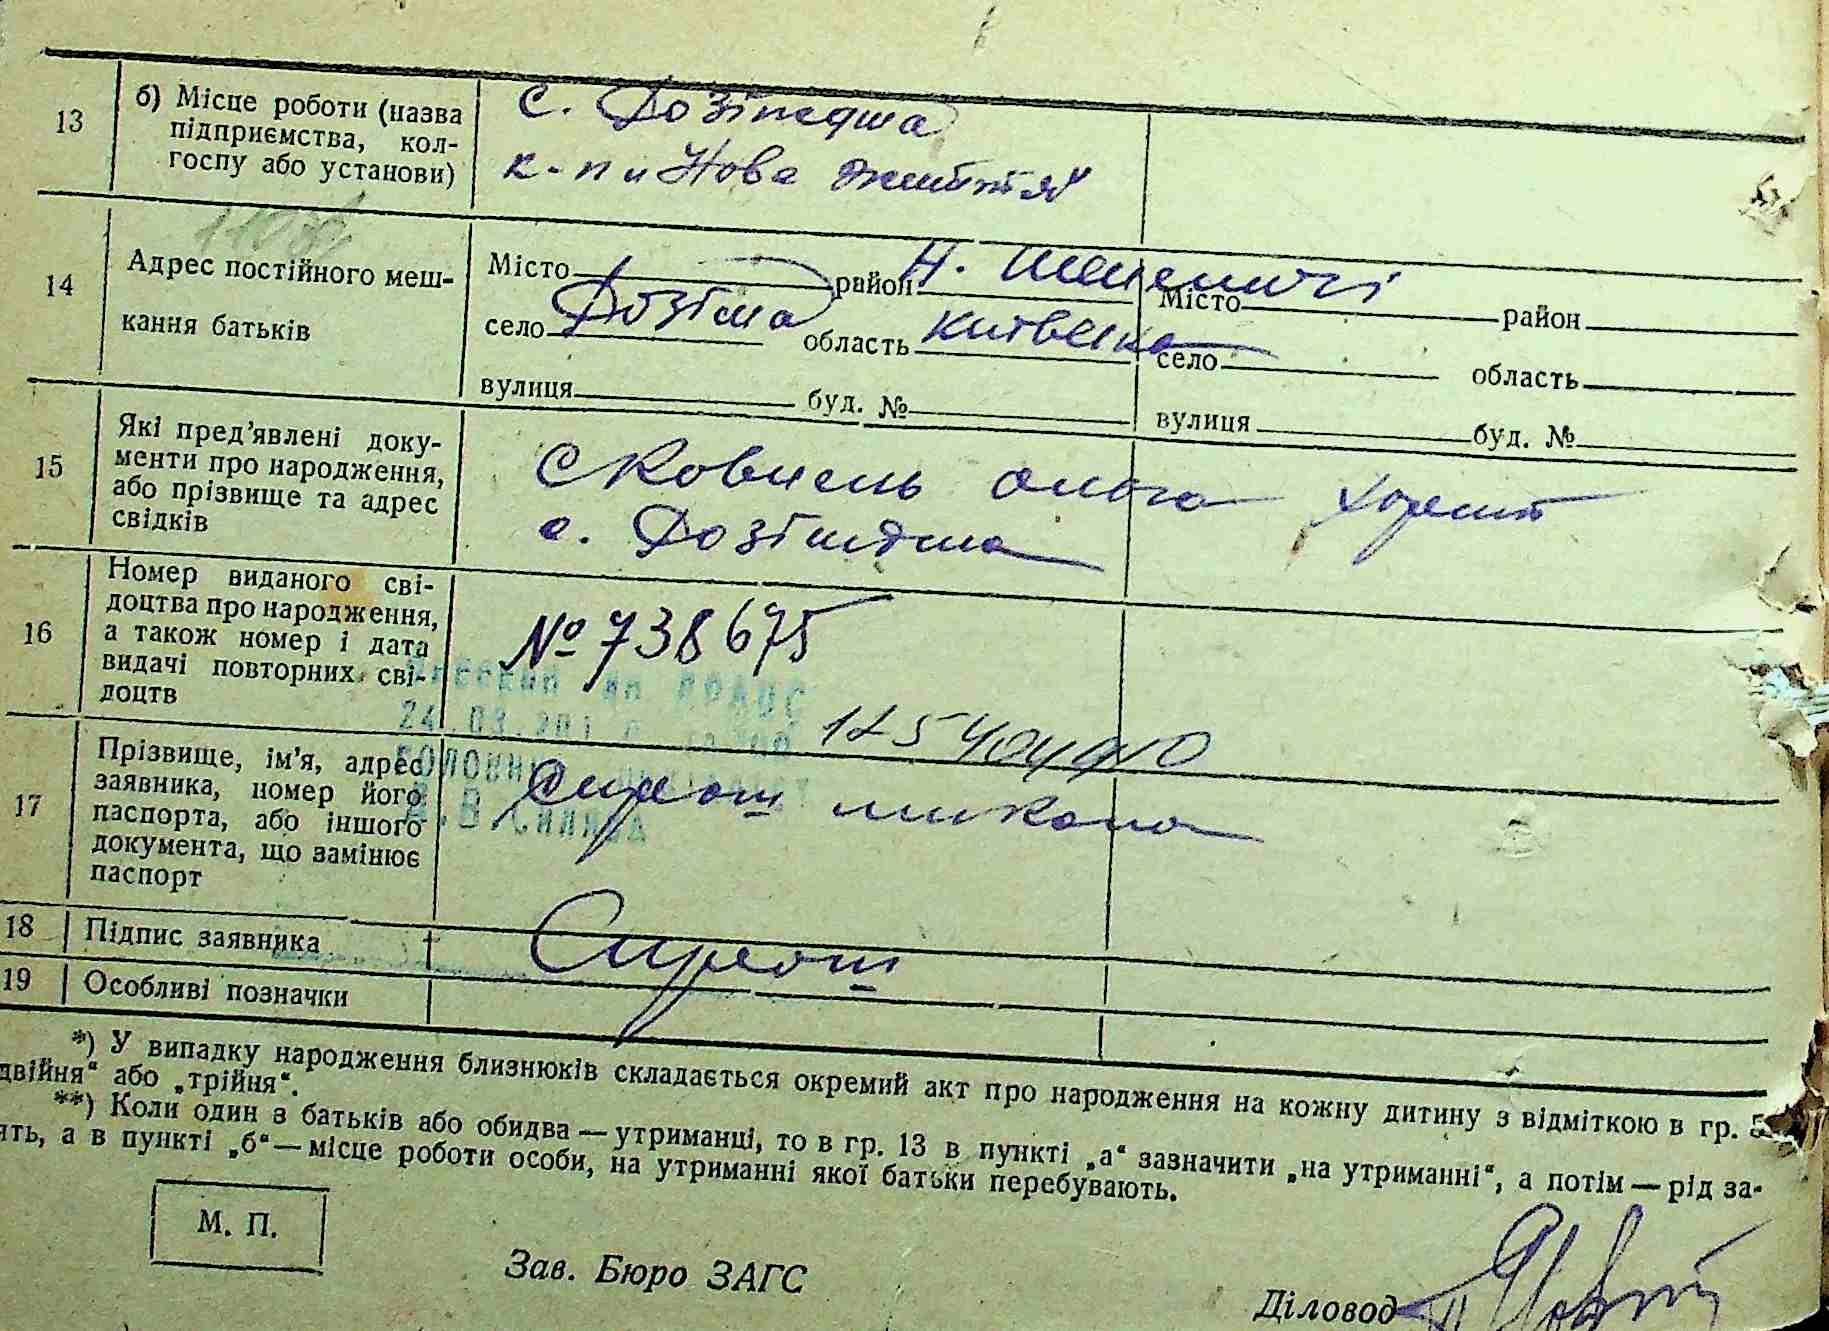 13
б) Місце роботи (назва
підприємства, кол-
госпу або установи)
с.
к-п „Нова життя"
14
Адрес постійного меш-
кання батьків
Місто район Н.
село область
вулиця буд. №
Місто район
село область
вулиця буд. №
15
Які пред'явлені доку-
менти про народження,
або прізвище та адрес
свідків
с.
16
Номер виданого сві-
доцтва про народження,
а також номер і дата
видачі повторних сві-
доцтв
№ 738675
17
Прізвище, ім'я, адрес
заявника, номер його
паспорта, або іншого
документа, що замінює
паспорт
18
Підпис заявника
19
Особливі позначки
*) У випадку народження близнюків складається окремий акт про народження на кожну дитину з відміткою в гр. 5
двійня" або „трійня".
**) Коли один з батьків або обидва — утриманці, то в гр. 13 в пункті „а" зазначити „на утриманні", а потім — рід за-
ять, а в пункті „б" — місце роботи особи, на утриманні якої батьки перебувають.
М. П.
Зав. Бюро ЗАГС
Діловод